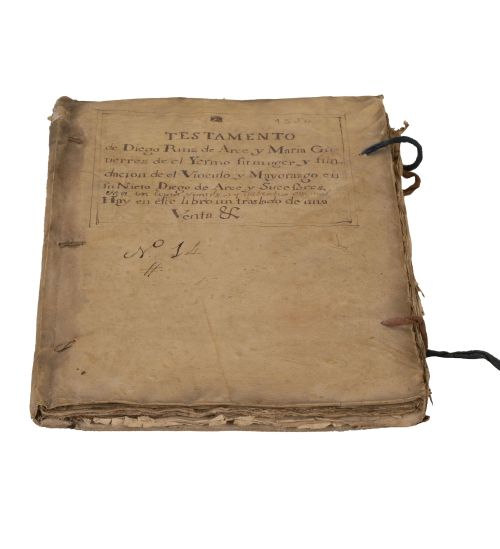 TESTAMENTO
de Diego Ruiz de Arce y Maria Gu
tierrez de el Yermo su muger y fun
dacion de el Vinculo y Mayorazgo en
su Nieto Diego de Arce y Sucesores
Hay en este libro un traslado de una
Venta &
Nº 14